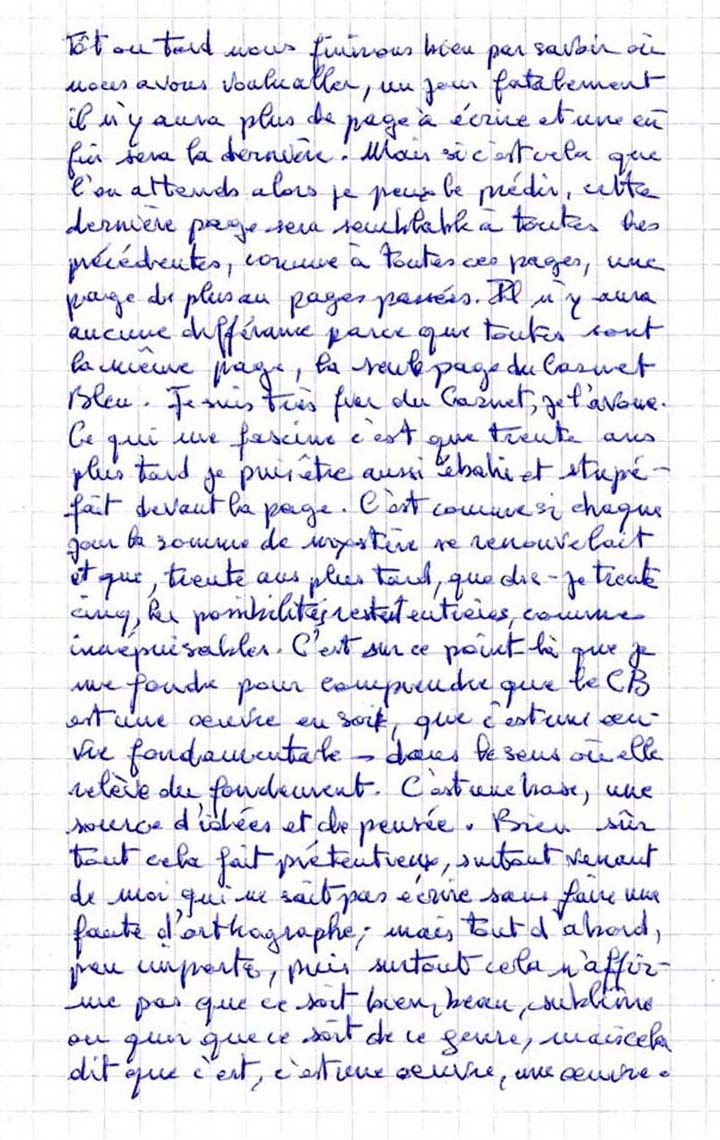 Tôt ou tard nous finirons bien par savoir où
nous avons voulu aller, un jour fatalement
il n'y aura plus de page à écrire et une en
fin sera la dernière. Mais si c'est cela que
l'on attends alors je peux le prédir, cette
dernière page sera semblable à toutes les
précédentes, comme à toutes ces pages, une
page de plus au pages passées. Il n'y aura
aucune différance parce que toutes sont
la même page, la seule page du Carnet
Bleu. Je suis très fier du Carnet, je l'avoue.
Ce qui me fascine c'est que trente ans
plus tard je puis être aussi ébahi et stupé-
fait devant la page. C'est comme si chaque
jour la somme de mystère se renouvelait
et que, trente ans plus tard, que dis-je trente
cinq, les possibilités restent entières, comme
inépuisables. C'est sur ce point là que je
me fonde pour comprendre que le CB
est une oeuvre en soit, que c'est une oeu-
vre fondamentale - dans le sens où elle
relève du fondement. C'est une base, une
source d'idées et de pensée. Bien sûr
tout cela fait prétentieux, surtout venant
de moi qui ne sait pas écrire sans faire une
faute d'orthographe; mais tout d'abord,
peu importe, puis surtout cela n'affir-
me pas que ce soit bien, beau, sublime
ou quoi que ce soit de ce genre, mais cela
dit que c'est, c'est une oeuvre, une oeuvre.